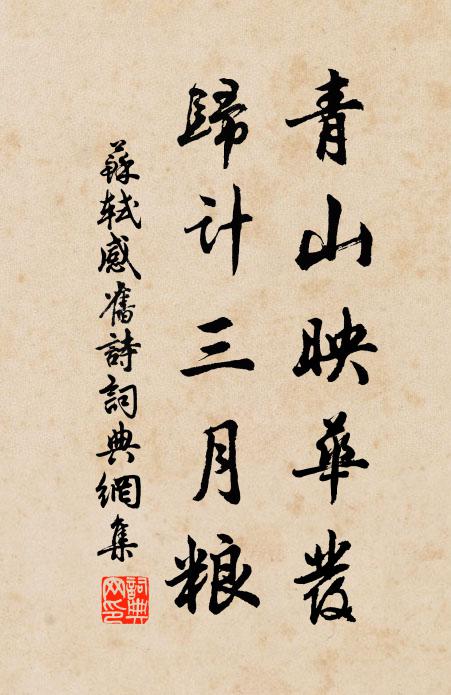 青山映華發
歸計三月粮
蘇軾感舊詩詞典網集
詞典網印